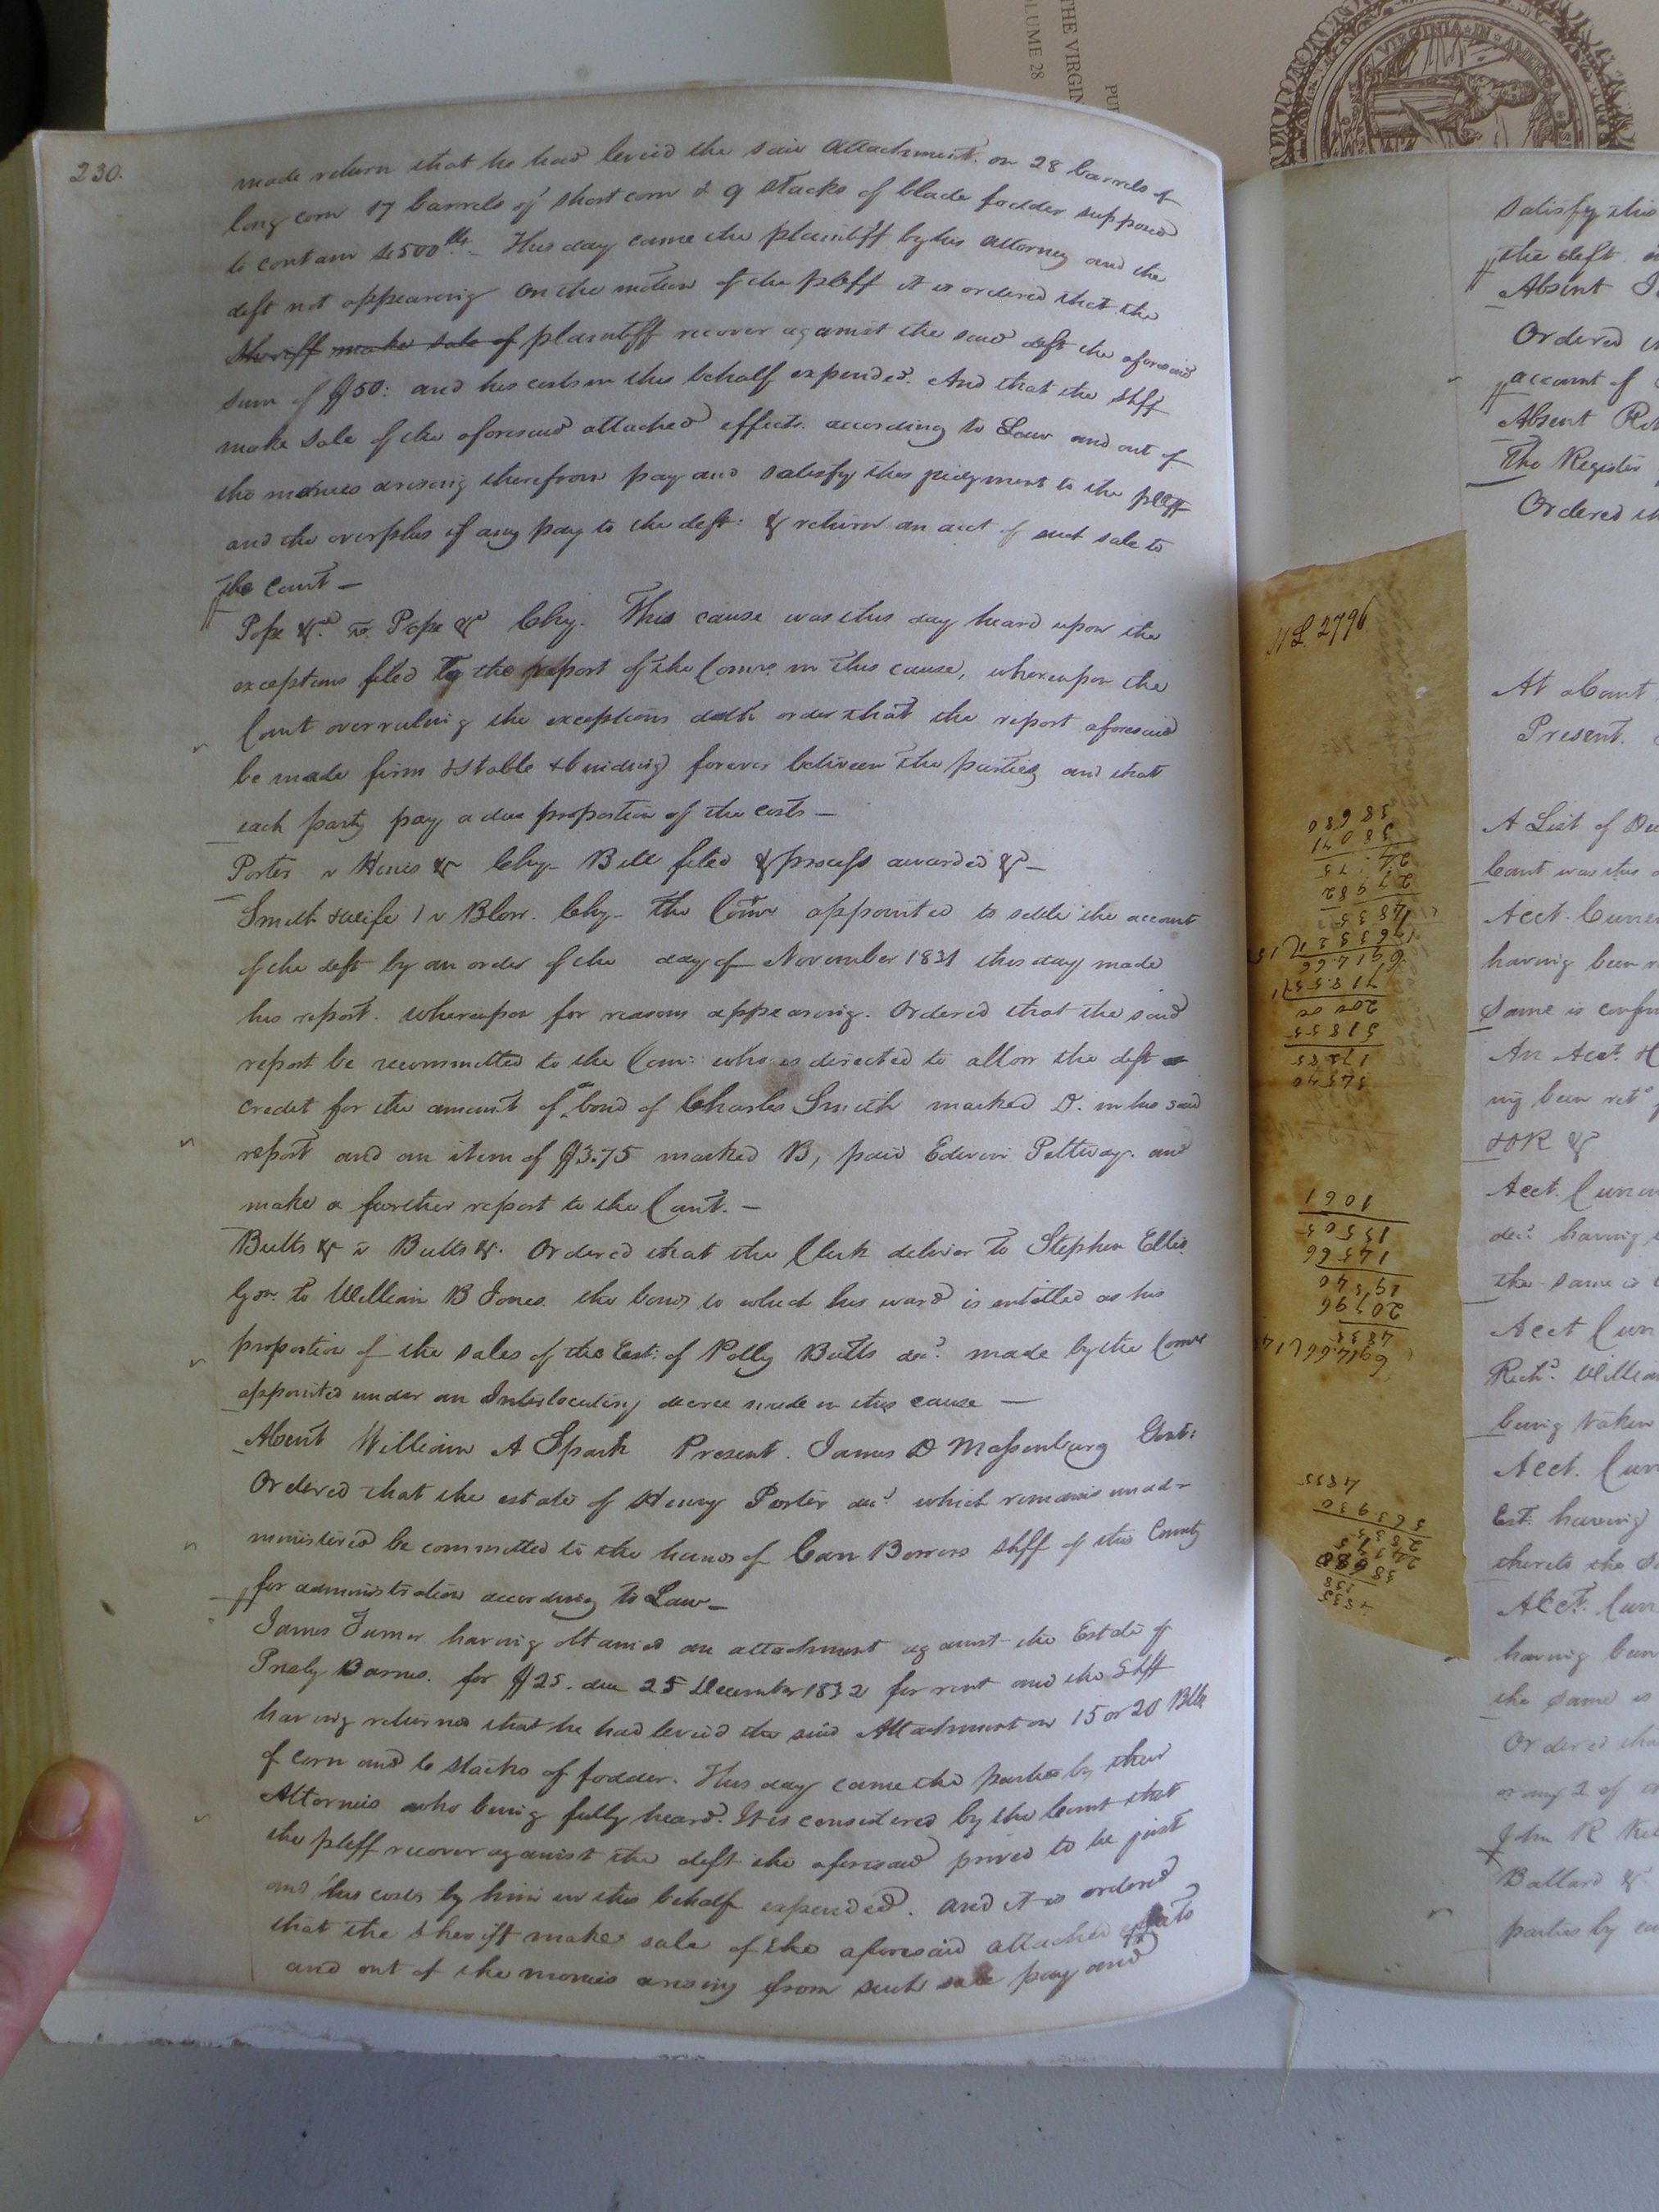 230.
made return that he had levied the said attachment on 28 barrels of
long corn 17 barrels of short corn & 9 stacks of blade fodder supposed
to contain 500 lbs. This day came the plaintiff by his attorney and the
deft not appearing On the motion of the pltff it is ordered that the
sheriff make sale of plaintiff recover against the said deft the aforesaid
sum of $50: and his costs in this behalf expended. And that the Shff
make sale of the aforesaid attached effects according to Law and out of
the monies arising therefrom pay and satisfy this judgment to the pltff
and the overplus if any pay to the deft: & return an acct of such sale to
the Court —
Pope &c. vs. Pope &c Chy. This cause was this day heard upon the
exceptions filed to the report of the Comrs. in this cause, whereupon the
Court overruling the exceptions doth order that the report aforesaid
be made firm & stable & binding forever between the parties and that
each party pay a due proportion of the costs —
Porter v Hines &c Chy. Bill filed & process awarded &c —
Smith & wife v Blow. Chy — The Comr appointed to settle the account
of the deft by an order of the day of November 1831 this day made
his report. whereupon for reasons appearing. Ordered that the said
report be recommitted to the Com: who is directed to allow the deft a
credit for the amount of a bond of Charles Smith marked D. in his said
report and an item of $3.75 marked B, paid Edwin Pettway and
make a further report to the Court. —
Butts &c v Butts &c. Ordered that the Clerk deliver to Stephen Ellis
Gdn. to William B Jones the bonds to which his ward is entitled as his
proportion of the sales of the Est: of Polly Butts decd. made by the Comrs
appointed under an Interlocutory decree made in this cause —
Absent William A Spark Present. James D Massenburg Gent:
Ordered that the estate of Henry Porter decd. which remains unad-
ministered be committed to the hands of Carr Bowers Shff of this County
for administration according to Law —
James Turner having obtained an attachment against the Estate of
Presly Barnes. for $25. due 25 December 1832 for rent and the Shff
having returned that he had levied the said Attachment on 15 or 20 Blls
of corn and 6 stacks of fodder. This day came the parties by their
Attornies who being fully heard. It is considered by the Court that
the pltff recover against the deft the aforesaid proved to be just
and his costs by him in this behalf expended. and it is ordered
that the sheriff make sale of the aforesaid attached effects
and out of the monies arising from such sale pay and
THE VIRGIN
LUME 28
PU
VIRGINIA
2796
38680
38071
24.75
27982
4835
6914.66
200 00
51855
17285
34540
1061
15505
14566
19340
20796
4835
6914.66
4835
563930
satisfy this
the deft
Absent
Ordered
account of
Absent
The Register
Ordered th
At a Court
Present.
A List of
Court was this
Acct. Curre
having been r
same is confir
An Acct.
ing been retd
&OR &c
Acct. Curre
decd. having
the same is
Acct Curr
Richd. William
being taken
Acct. Curr
Est. having
thereto the
Acct. Curr
having been
the same is
Ordered tha
or any 2 of
John R
Ballard &c
parties by